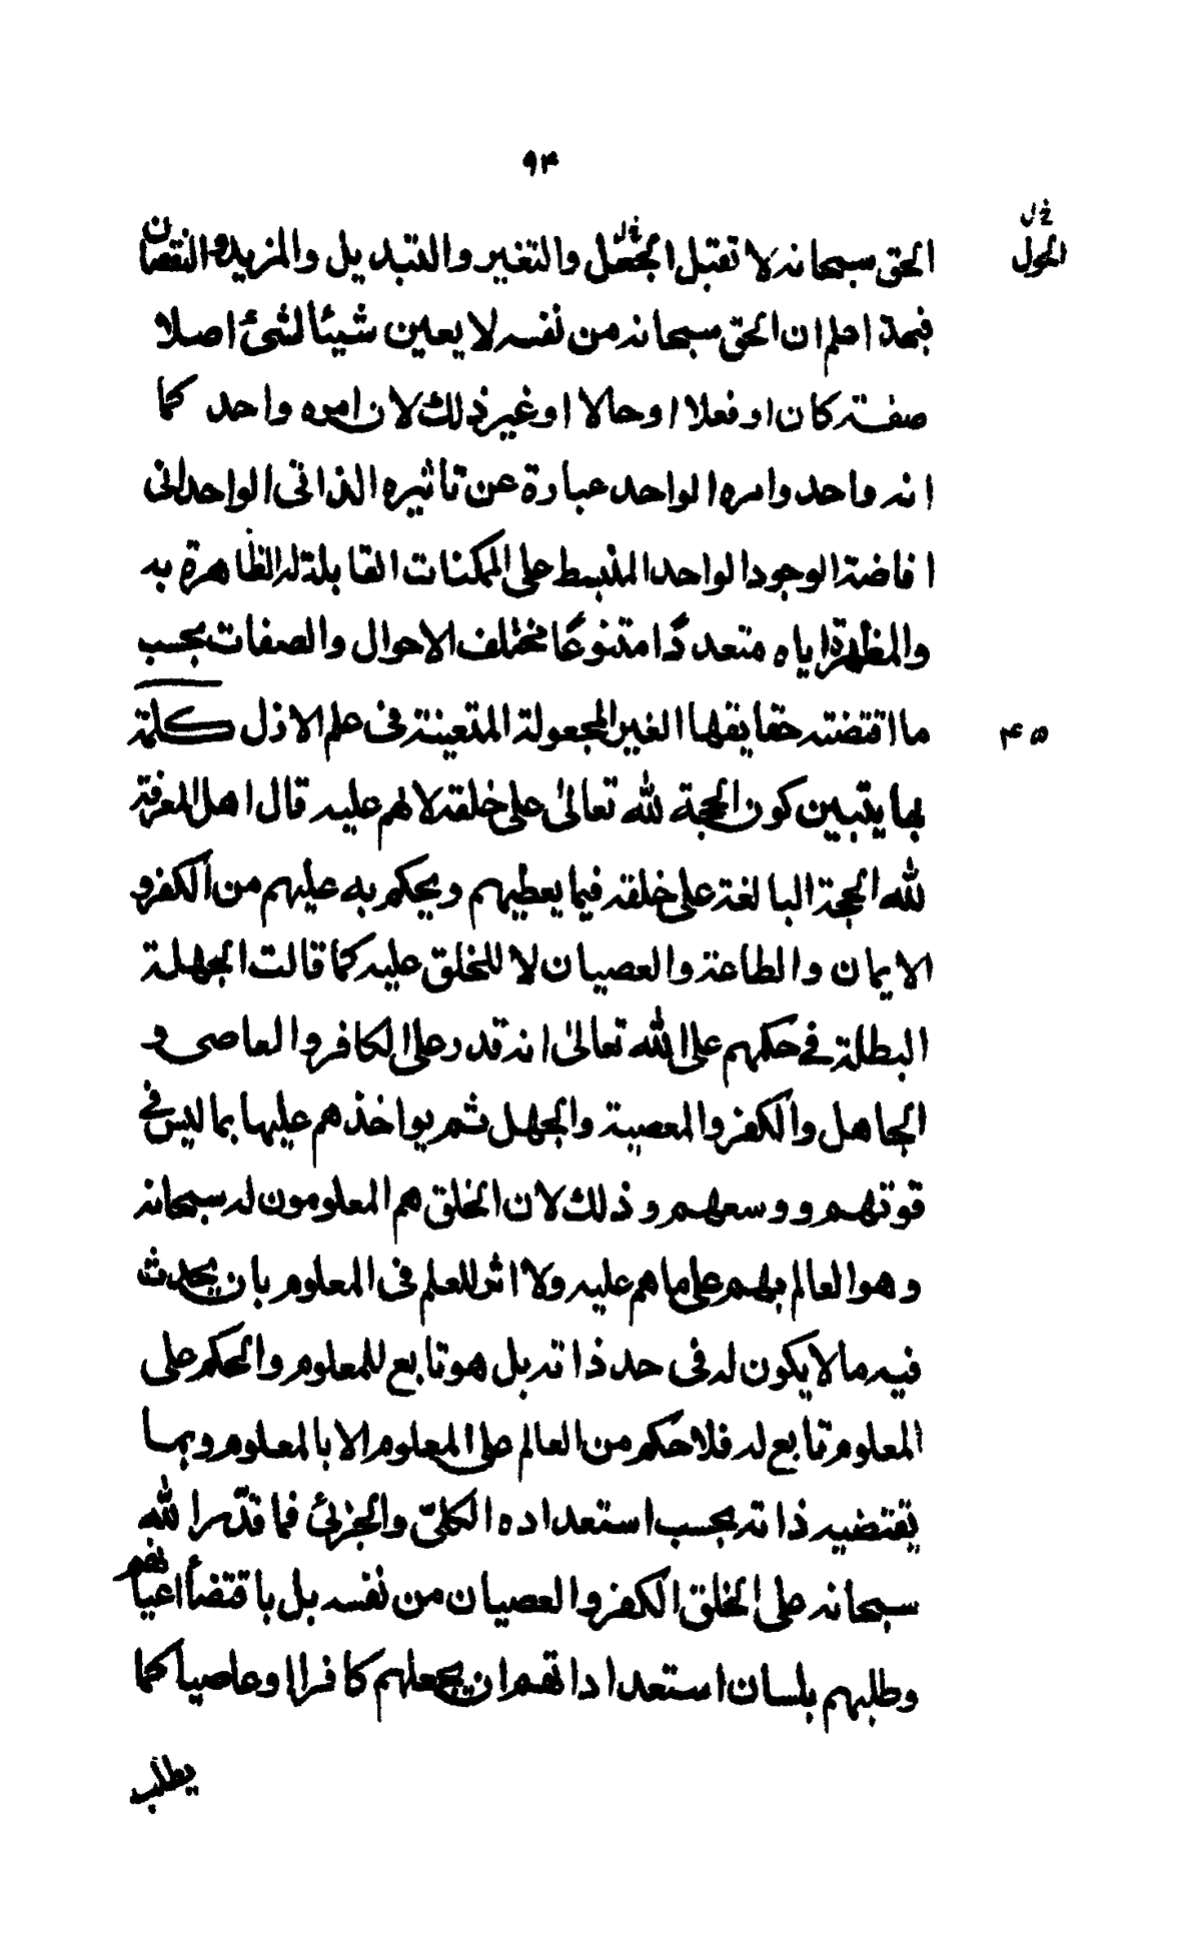 ۹۴
خ ل
الحول
الحق سبحانه لا تقبل الجعل والتغير والتبديل والمزيد والنقصان
فبهذا علم ان الحق سبحانه من نفسه لا يعين شيئا لشئ اصلا
صفته كان او فعلا او حالا او غير ذلك لان امره واحد كما
انه واحد وامره الواحد عبارة عن تاثيره الذاتى الواحدانى
افاضة الوجود الواحد المنبسط على الممكنات القابلة له الظاهرة به
والمظهرة اياه متعددًا متنوعًا مختلف الاحوال والصفات بحسب
ما اقتضته حقايقها الغير المجعولة المتعينة فى علم الازل كلمة
۴۵
بها يتبين كون الحجة لله تعالىٰ على خلقه لا لهم عليه قال اهل المعرفة
لله الحجة البالغة على خلقه فيما يعطيهم ويحكم به عليهم من الكفر و
الايمان والطاعة والعصيان لا للخلق عليه كما قالت الجهلة
البطلة فى حكمهم على الله تعالىٰ انه قدر على الكافر والعاصى و
الجاهل والكفر والمعصية والجهل ثم يواخذهم عليها بما ليس فى
قوتهم ووسعهم وذلك لان الخلق هم المعلومون له سبحانه
وهو العالم بهم على ما هم عليه ولا اثر للعلم فى المعلوم بان يحدث
فيه ما لا يكون له فى حد ذاته بل هو تابع للمعلوم والحكم على
المعلوم تابع له فلا حكم من العالم على المعلوم الا بالمعلوم وبما
يقتضيه ذاته بحسب استعداده الكلىّ والجزئ فما قدّر الله
سبحانه على الخلق الكفر والعصيان من نفسه بل باقتضأ اعيانهم
وطلبهم بلسان استعداداتهم ان يجعلهم كافرا او عاصيا كما
يطلب